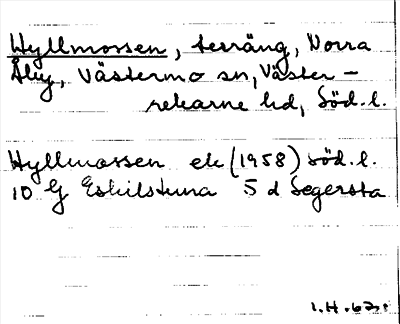 Hyllmossen, terräng, Norra
Åby, Västermo sn, Väster-
rekarne hd, Söd.l.
Hyllmossen ek (1958) söd.l.
10 G Eskilstuna 5 d Segersta
I.H. 63